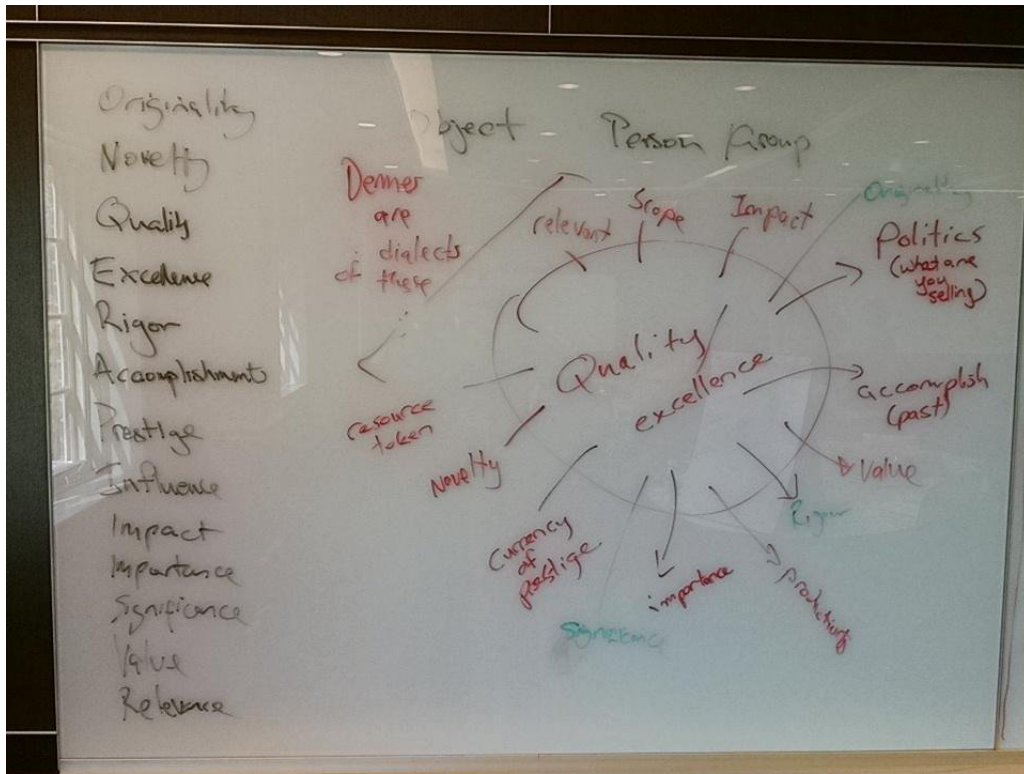 Originality
Novelty
Quality
Excellence
Rigor
Accomplishments
Prestige
Influence
Impact
Importance
Significance
Value
Relevance
Object Person/Group
are
dialects
of these
relevant
Scope
Impact
Originality
Politics
(what are
you
selling)
Quality
excellence
accomplish
(past)
Value
Rigor
productivity
importance
Significance
Currency
of
Prestige
Novelty
resource
token